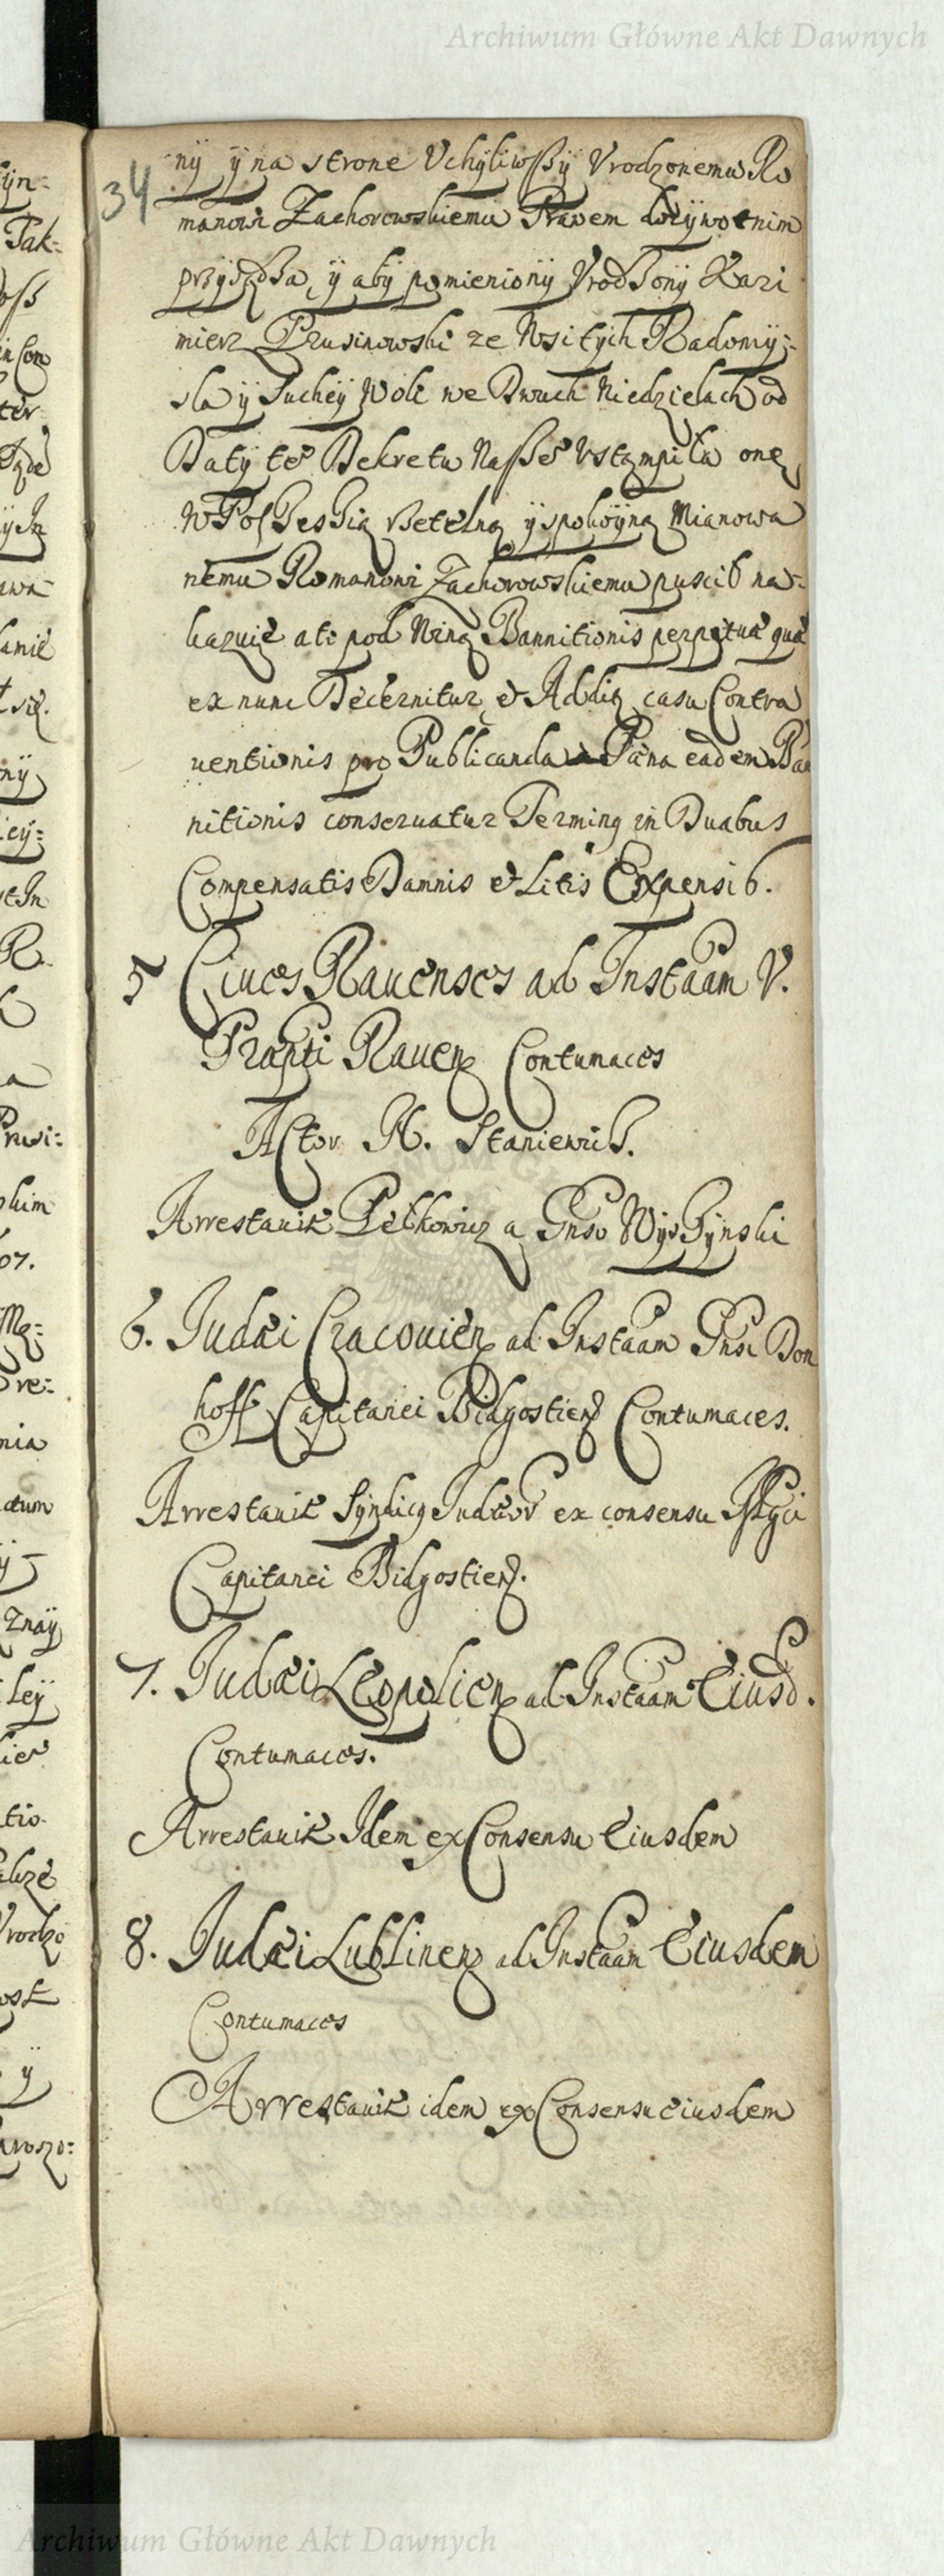 Archiwum Główne Akt Dawnych
34
ny y na strone Vchyliwszy Vrodzonemu Ro
manowi Zachorowskiemu Prawem dozywotnim
przysądza, y aby pomieniony Vrodzony Kazi
mierz Prusinowski ze Wsi tych Radomy:
sla y Suchey Woli we Dwuch Niedzielach od
Daty te° Dekretu Nasze° Vstąmpiła onę
W Possessią rzetelną y spokoyną Mianowa
nemu Romanowi Zachorowskiemu puscił na:
kazuie ato pod Winą Bannitionis perpetuæ quæ
ex nunc Decernitur, & in casu Contra
uentionis pro Publicanda Pæna eadem Ban
nitionis conseruatur Terming in Duabus
Compensatis Damnis & Litis Expensib.
5 Ciues Rauenses ad Instãam V.
Præpti Rauen Contumaces
Actor H. Staniewicz.
Arrestauit Petkowicz a Gnso Wyszynski
6. Judæi Cracouien ad Instãam Gnsi Don
hoff Capitanei Bidgostien Contumaces.
Arrestauit Syndicg Judæor ex consensu
Capitanei Bidgostien.
7. Judæi Leopolien ad Instãam Eiusd.
Contumaces.
Arrestauit Idem ex Consensu Eiusdem
8. Judæi Lublinen ad Instãam Eiusdem
Contumaces
Arrestauit idem ex Consensu eiusdem
Archiwum Główne Akt Dawnych